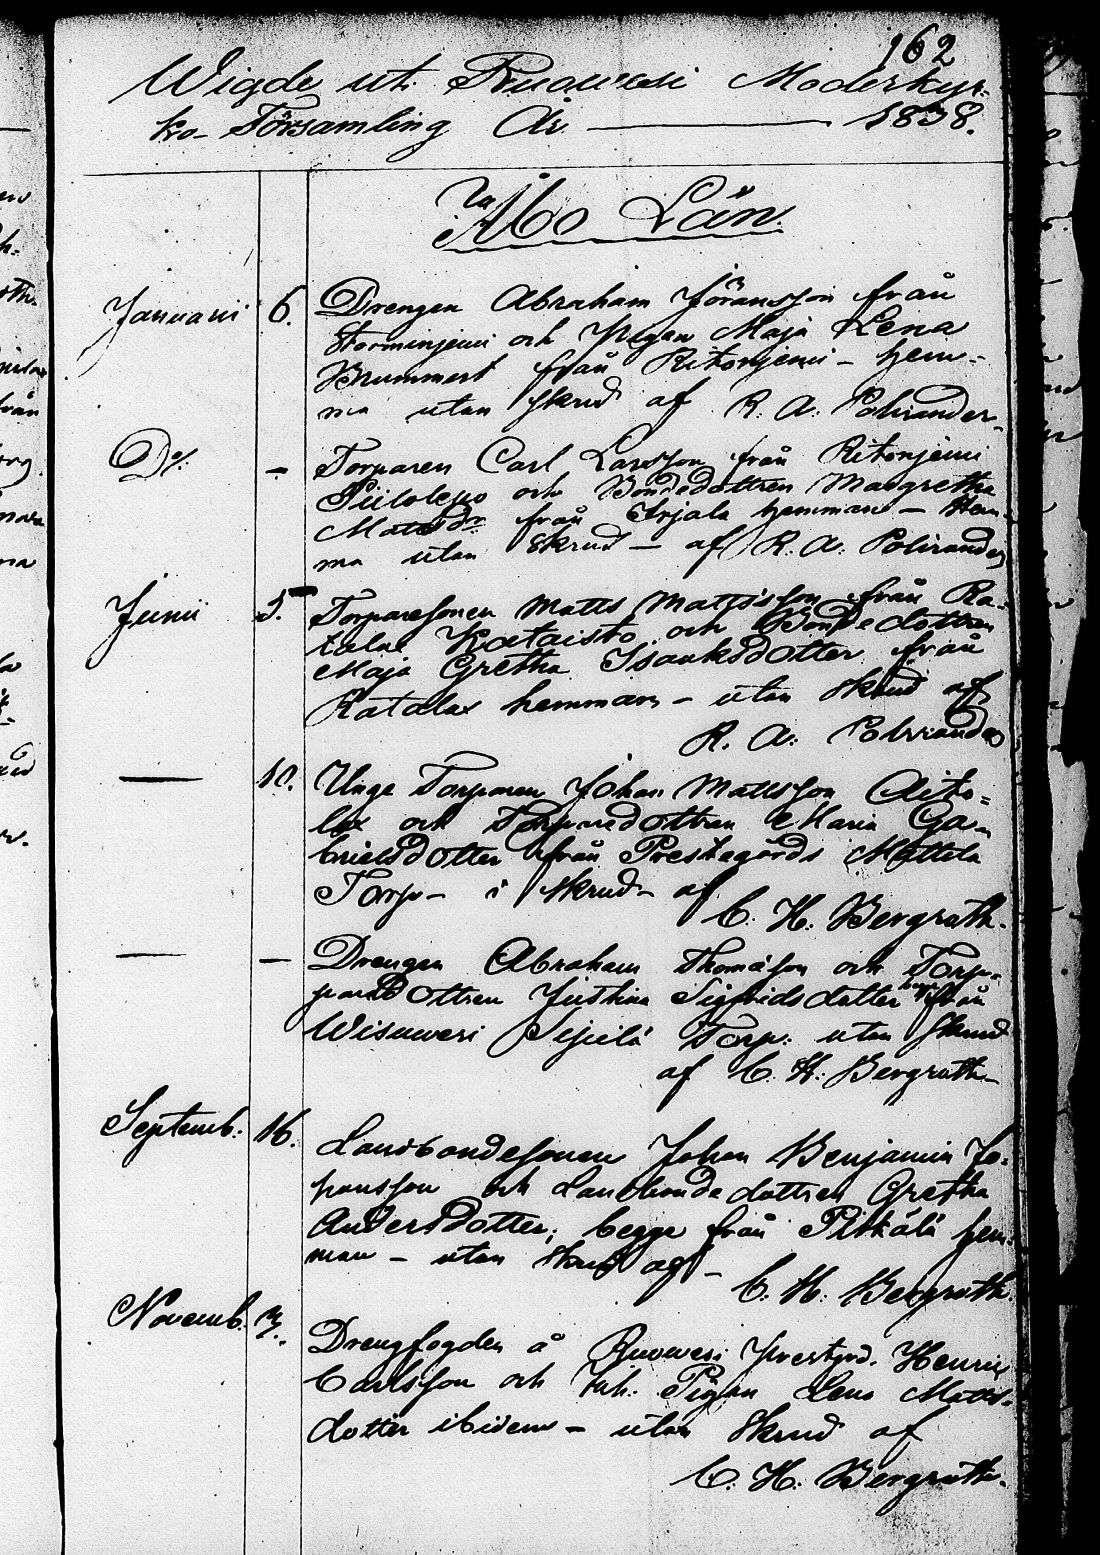 162
Wigde uti Ruowesi Moderkyr-
ko Församling År — 1838.
Åbo Län.
Januarii 6. Drengen Abraham Jöransson från
Storminjemi och Pigan Maja Lena
Brummert från Ritonjemi - hem-
ma utan skrud af R. A. Polviander
Do/. - Torparen Carl Larsson från Ritonjemi
Piilolepo och Bondedottren Margretha
Matsdr från Irjala hemman - Hem-
ma utan Skrud - af R. A. Polviander
Junii 5. Torparesonen Matts Mattsson från Ra-
tala Kataisto och Bondedottren
Maja Gretha Isaaksdotter från
Ratala hemman - utan skrud af
R. A. Polviander
— 10. Unge Torparen Johan Mattsson Aito-
och Torparedottren Maria Ga-
brielsdotter från Prestegårds Mattila
Torp - i skrud - af
C. H. Bergroth.
— - Drengen Abraham Thomasson och Torp-
paredottren Justina Sigfridsdotter begge från
Wisuwesi Torp. utan skrud
af C. H. Bergroth
Septemb. 16. Landbondesonen Johan Benjamin Jo-
hansson och Landbondedottren Gretha
Andersdotter, begge från Pitkälä hem-
man - utan skrud af -
C. H. Bergroth
Novemb. 3. Drengfogden å Ruowesi Prestgrd. Henric
Carlsson och Pigan Lena Matts-
dotter ibidem - utan skrud af
C. H. Bergroth.